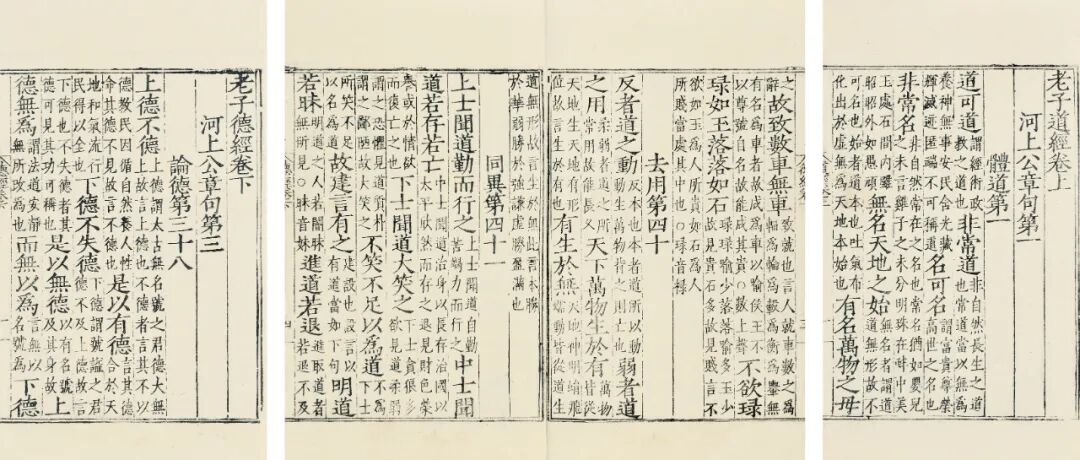 老子道經卷上
河上公章句第一
體道第一
道可道謂經術政教之道也非常道非自然長生之道也常道當以無爲
養神無事安民含光藏暉滅迹匿端不可稱道名可名謂富貴尊榮高世之名也
非常名非自然常在之名也常名愛如嬰兒之未言雞子之未分明珠在蚌中美
玉處石間内雖昭昭外如愚頑無名天地之始無名者謂道道無形故不可名也始者道本也吐氣布
化出於虛無爲天地本始也有名萬物之母
之辭故致數車無車致就也言人就車數之爲輻爲輪爲轂爲衡爲轝無
有名爲車者故成爲車以喻侯王不以尊號自名故能成其貴○數上聲不欲琭
琭如玉落落如石琭琭喻少落落喻多玉少故見貴石多故見賤言不
欲如玉爲人所貴如石爲人所賤當處其中也○琭音祿
去用第四十
反者道之動反本也本者道所以動動生萬物背之則亡也弱者道
之用柔弱者道之所常用故能長久天下萬物生於有萬物皆從
天地生天地有形位故言生於有也有生於無天地神明蜎飛蠕動皆從道生
道無形故言生於無此言本勝於華弱勝於強謙虛勝盈滿也
同異第四十一
上士聞道勤而行之上士聞道自勤苦竭力而行之中士聞
道若存若亡中士聞道治身以長存治國以太平欣然而存之退見財色榮
譽或於情欲而復亡之也下士聞道大笑之下士貪狠多欲見道柔弱
謂之恐懼見道質朴謂之鄙陋故大笑之不笑不足以爲道不爲下士
所笑不足以名爲道故建言有之建設也設言以有道當如下句明道
若昧明道之人若闇昧無所見○昧音妹進道若退進取道者若退不及
老子德經卷下
河上公章句第三
論德第三十八
上德不德上德謂太古無名號之君德大無上故言上德也不德者言其不以
德教民因循自然養人性命其德不見故言不德也是以有德言其德合於天
地和氣流行民得以全也下德不失德下德謂號謚之君德不及上德故言
下德也不失德者其德可見其功可稱也是以無德以有名號及其身故上
德無爲謂法道安靜無所施爲也而無以爲言無以名號爲下德